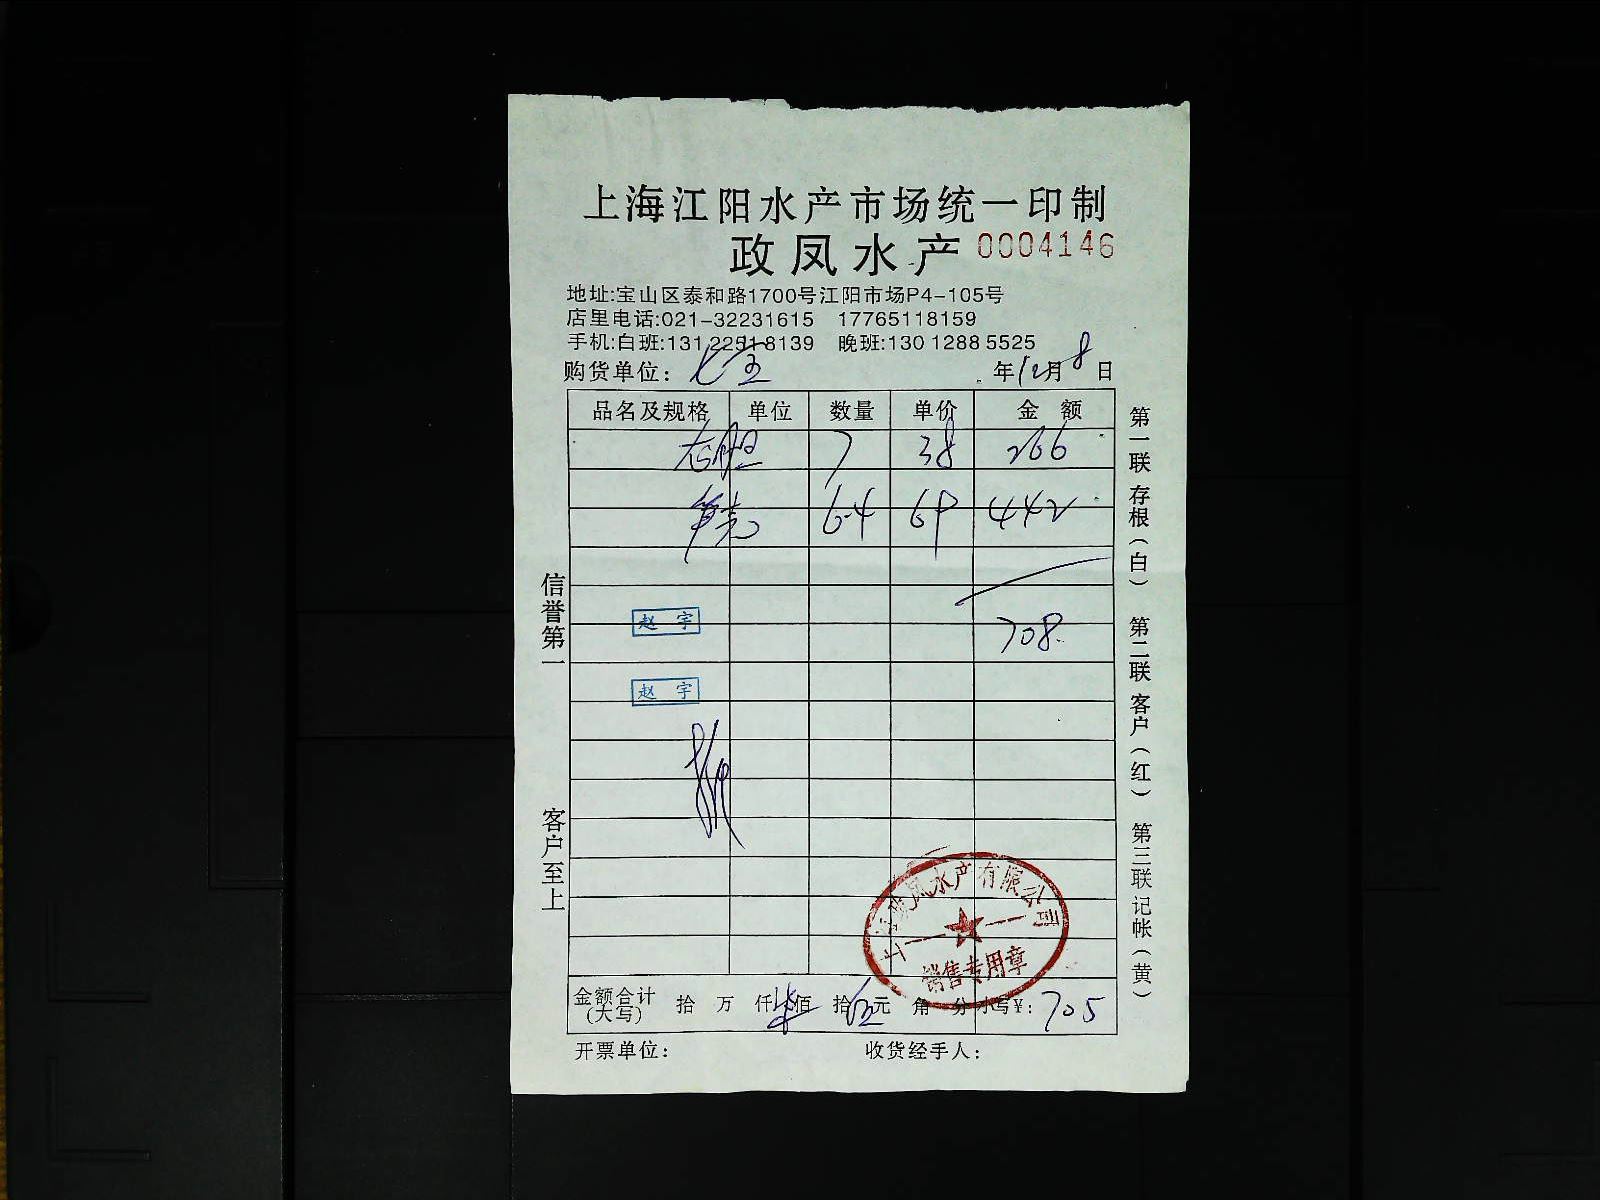 上海江阳水产市场统一印制
政凤水产 0004146
地址:宝山区泰和路1700号江阳市场P4-105号
店里电话:021-32231615 17765118159
手机:白班:131 2251 8139 晚班:130 1288 5525
购货单位: 七宝 年12月8日
品名及规格 单位 数量 单价 金额
7 38 266
6.4 69 442
赵宇
708.
赵宇
上海政凤水产有限公司
销售专用章
金额合计(大写) 拾 万 仟 柒佰 拾 伍元 角 分 小写¥: 705
开票单位: 收货经手人:
信誉第一
客户至上
第一联 存根(白) 第二联 客户(红) 第三联 记帐(黄)